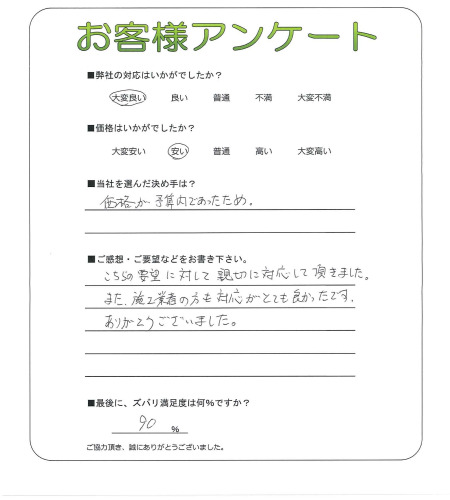 お客様アンケート
■弊社の対応はいかがでしたか？
大変良い 良い 普通 不満 大変不満
■価格はいかがでしたか？
大変安い 安い 普通 高い 大変高い
■当社を選んだ決め手は？
価格が予算内であったため。
■ご感想・ご要望などをお書き下さい。
こちらの要望に対して親切に対応して頂きました。
また、施工業者の方も対応がとても良かったです。
ありがとうございました。
■最後に、ズバリ満足度は何％ですか？
90 ％
ご協力頂き、誠にありがとうございました。